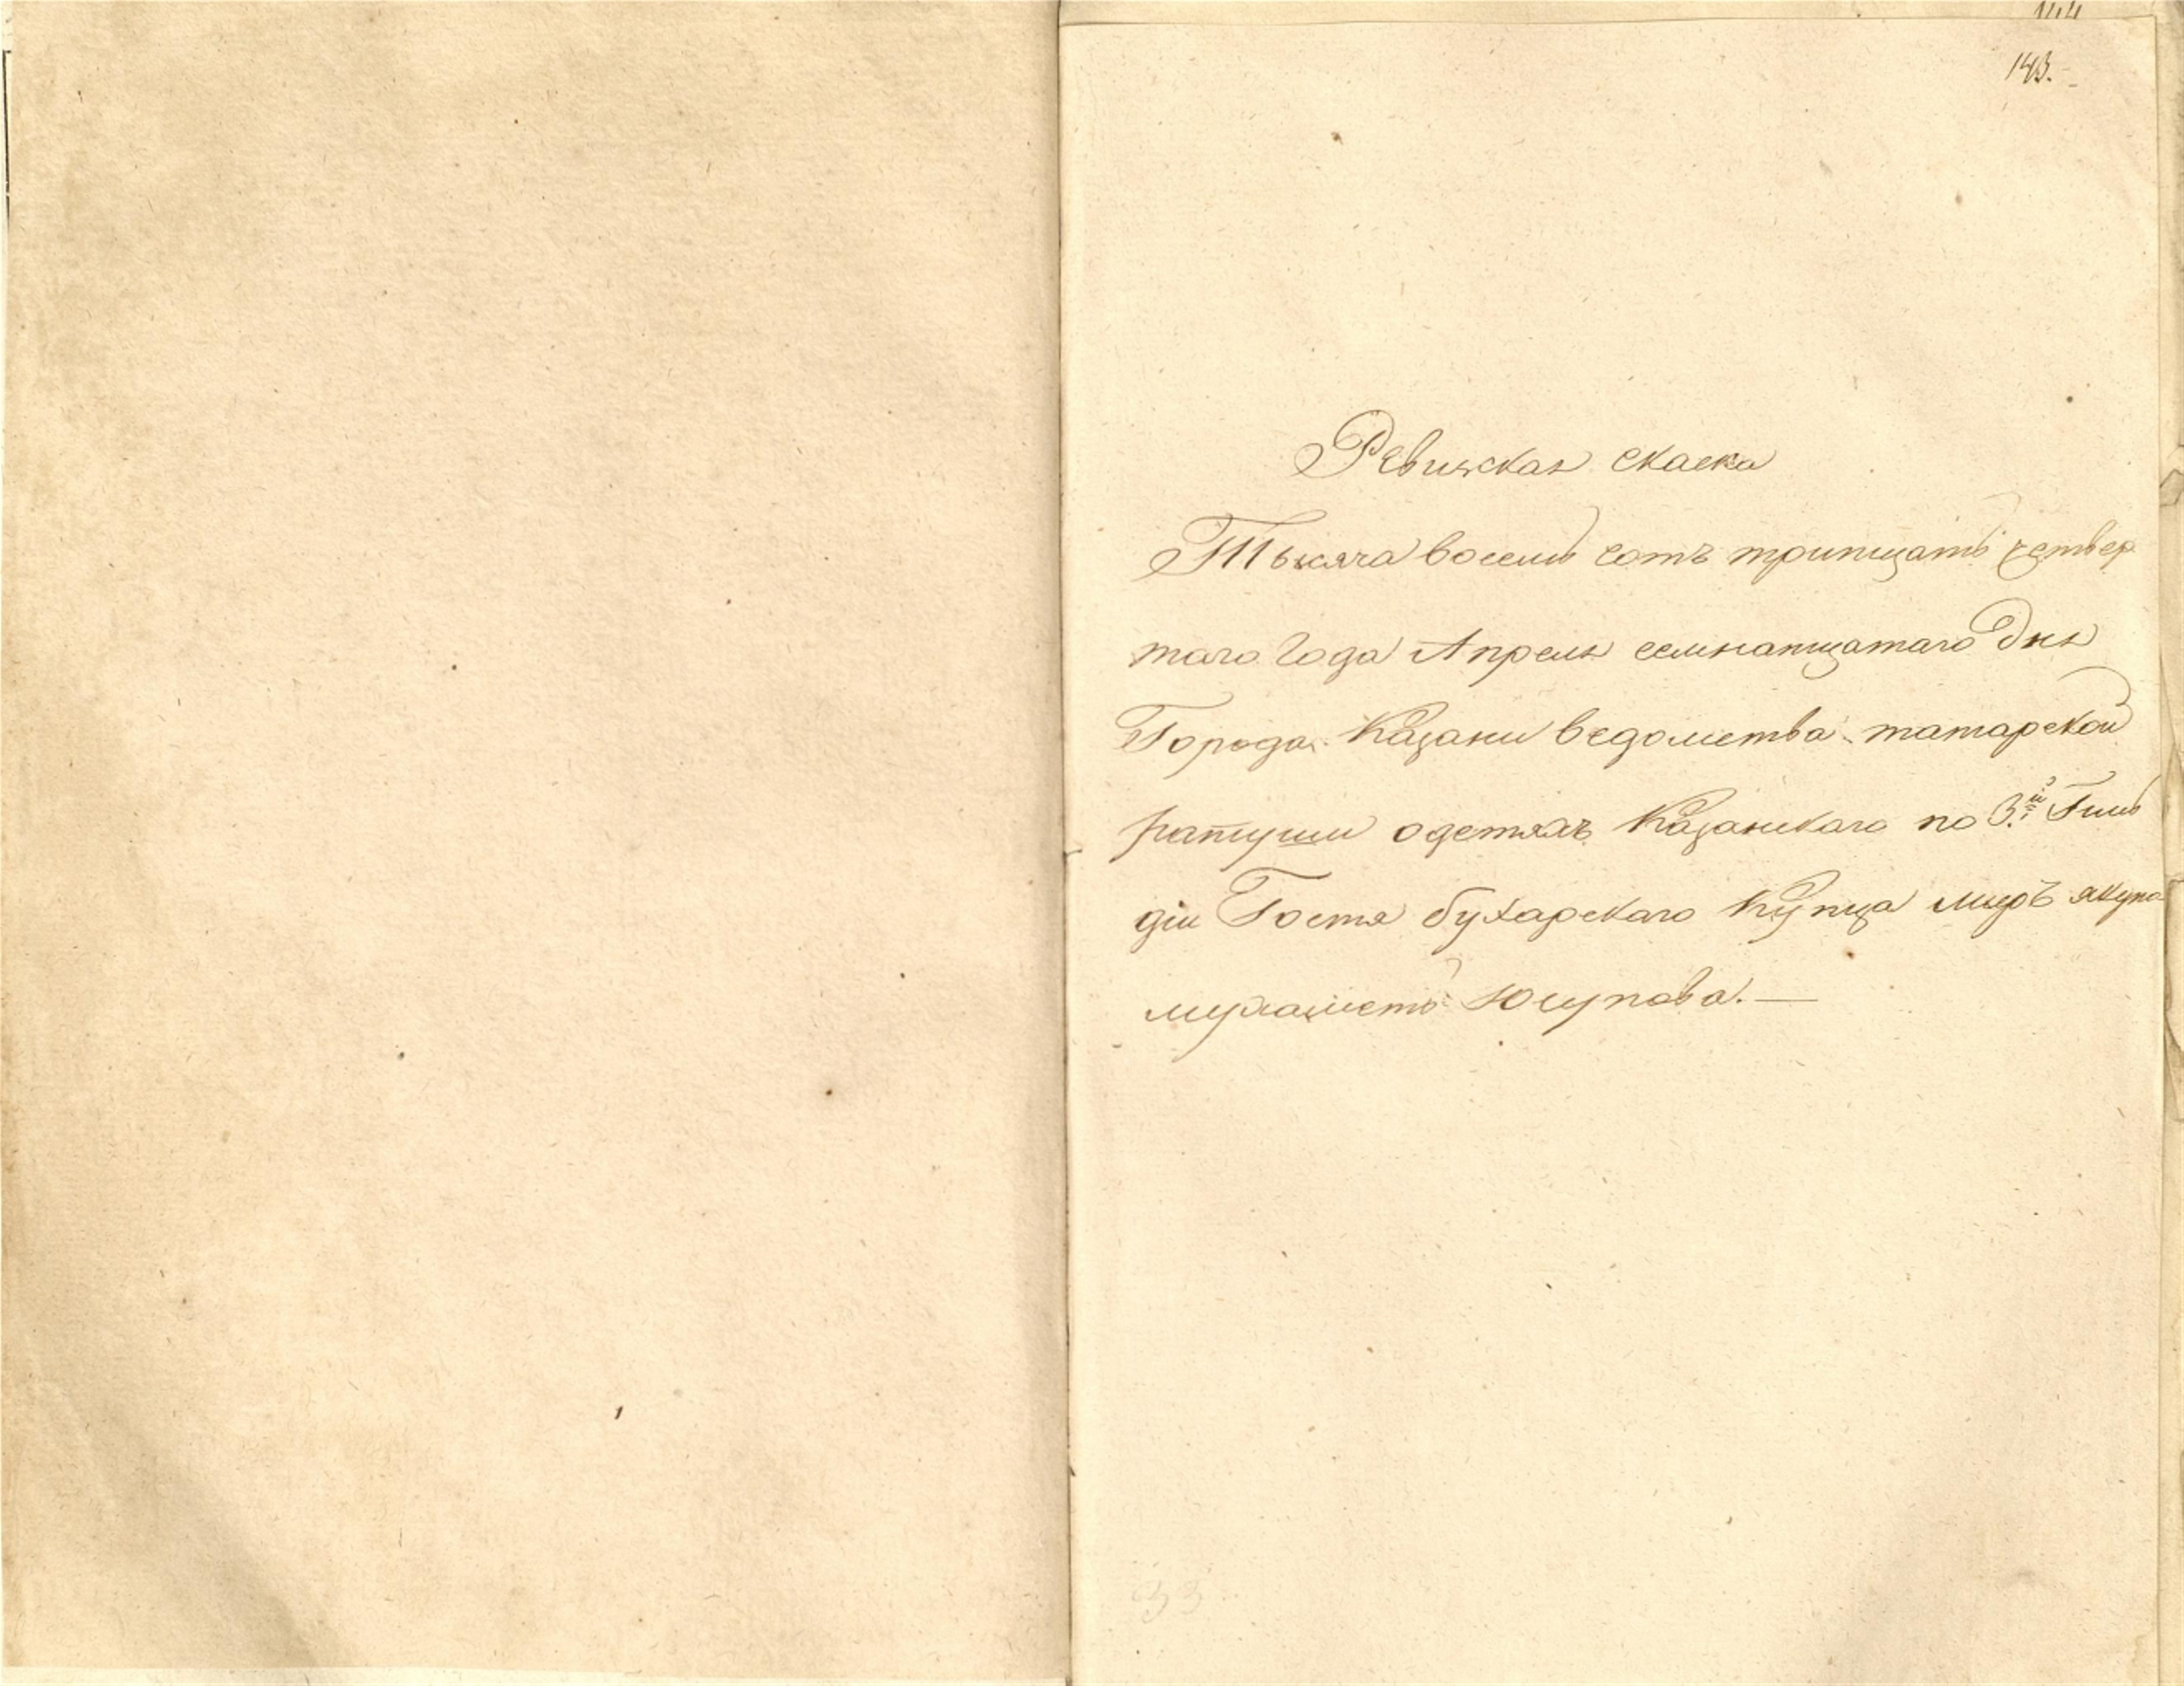 143.
Ревижская скаска
Тысяча восемь сотъ тритцать четвер
таго Года Апреля семнатцатаго дня
Города Казани ведомства татарской
ратуши одетяхъ Казанскаго по 3.й Гиль
діи Гостя бухарскаго Купца миръ якупа
мухаметь Юсупова.—
33